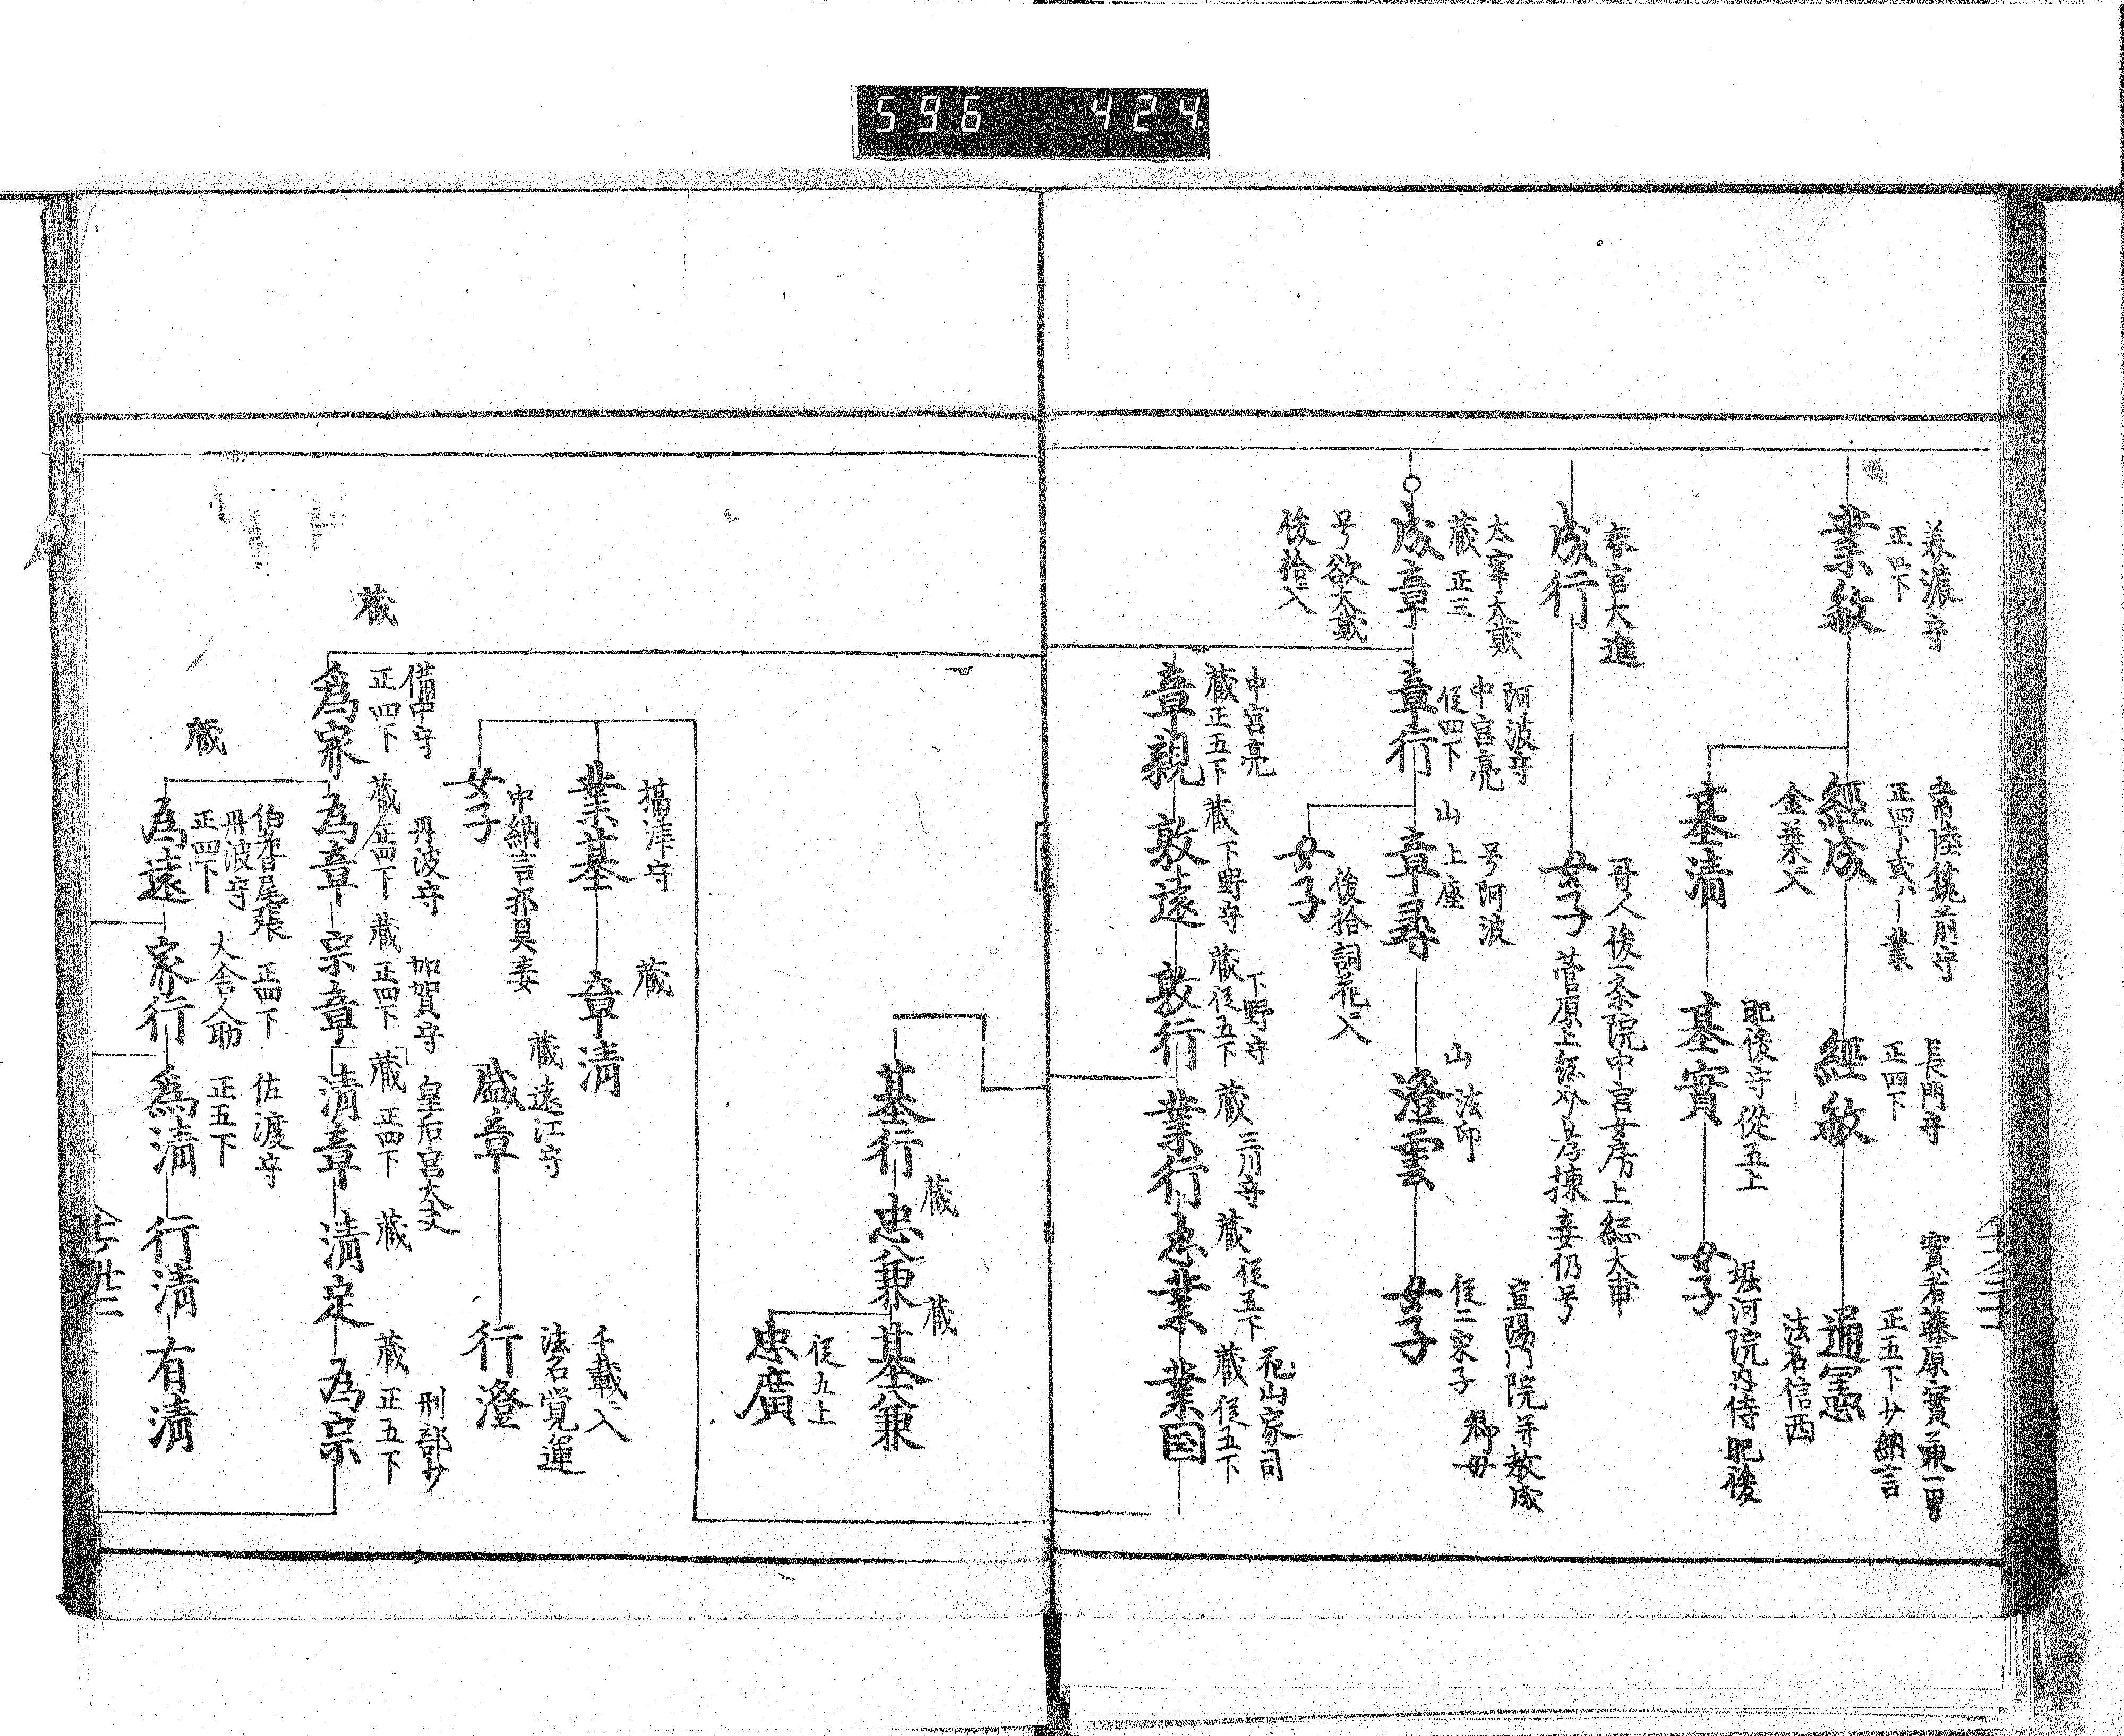 596 424
美濃守
正四下
業敏
常陸筑前守
正四下式ハー業
經成
金葉入
長門守
正四下
經敏
實者藤原實兼一男
正五下少納言
通憲
法名信西
基清
肥後守従五上
基實
堀河院内侍肥後
女子
春宮大進
成行
哥人後一条院中宮女房上総大甫
女子
菅原上総介孝揀妾仍号
太宰大貳
蔵正三
成章
号欲大貳
後拾入
阿波守
中宮亮
従四下
章行
号阿波
山上座
章尋
山法印
澄雲
宣陽門院并教成
従二栄子 御母
女子
後拾詞花入
女子
中宮亮
蔵正五下
章親
蔵下野守
敦遠
下野守
蔵従五下
敦行
蔵三川守
業行
蔵従五下
忠業
花山家司
蔵従五下
業国
基行
蔵
忠兼
蔵
基兼
従五上
忠廣
摂津守
業基
蔵
章清
中納言邦具妻
女子
蔵遠江守
盛章
千載入
法名覚運
行澄
蔵
備中守
正四下
為家
丹波守
蔵正四下
為章
加賀守
蔵正四下
宗章
皇后宮大夫
蔵正四下
清章
蔵
清定
刑部少
蔵正五下
為宗
蔵
伯耆尾張
丹波守
正四下
為遠
正四下
大舎人助
家行
佐渡守
正五下
為清
行清
有清